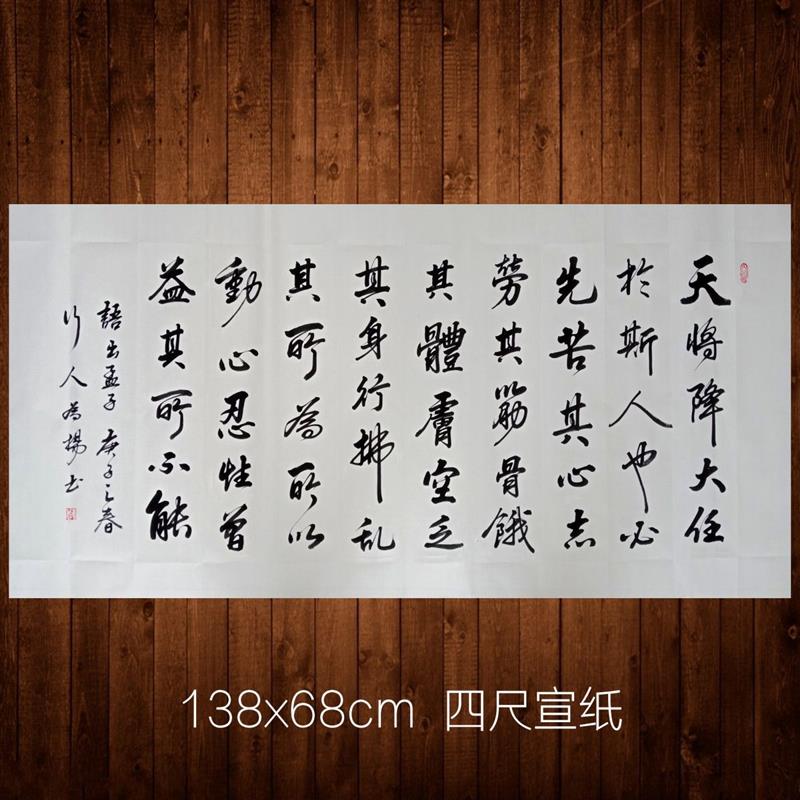 天将降大任
於斯人也必
先苦其心志
勞其筋骨餓
其體膚空乏
其身行拂乱
其所為所以
動心忍性曾
益其所不能
語出孟子 庚子之春
行人為揚书
138x68cm 四尺宣纸